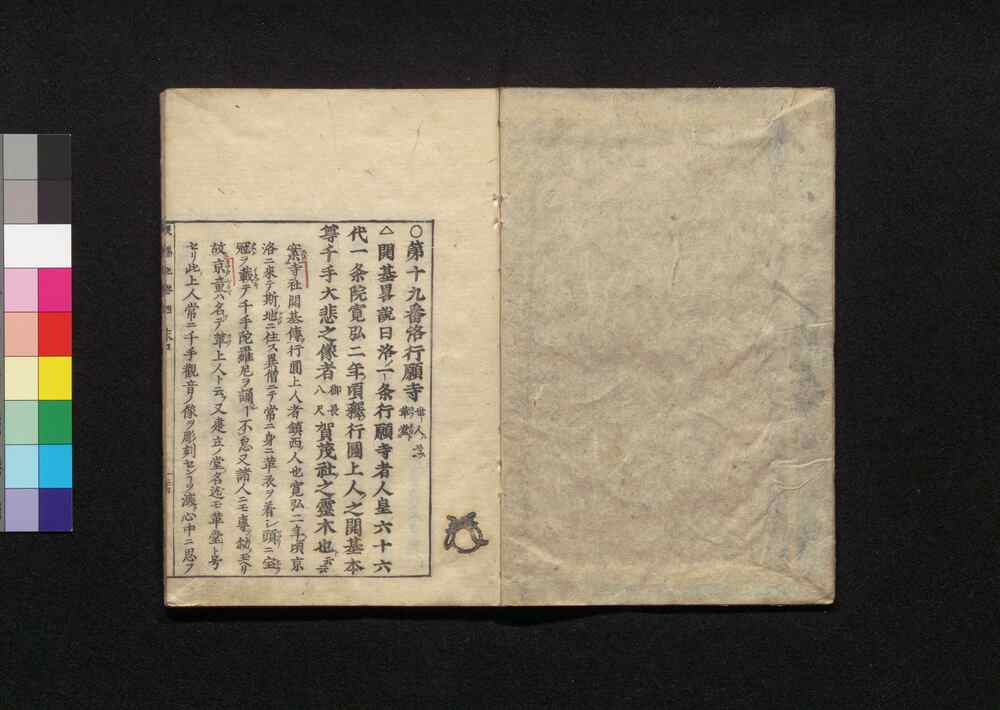 〇第十九番洛行願寺 世人 革堂ト云
△開基畧説曰洛ノ一条行願寺者人皇六十六
代一条院寛弘二年頃釋行圓上人之開基本
尊千手大悲之像者 御長 八尺 賀茂社之靈木也 云云
寺社開基傳行圓上人者鎮西ノ人也寛弘二年頃京
洛ニ来テ斯地ニ住ス異僧ニテ常ニ身ニ革衣ヲ着シ頭ニ宝
冠ヲ戴テ千手陀羅尼ヲ誦シテ不怠又諸人ニモ専勧
故京童名テ革上人ト云フ又建立ノ堂名迄モ革堂ト号
セリ此上人常ニ千手觀音ノ像ヲ彫刻セシヿヲ 心中ニ思フ